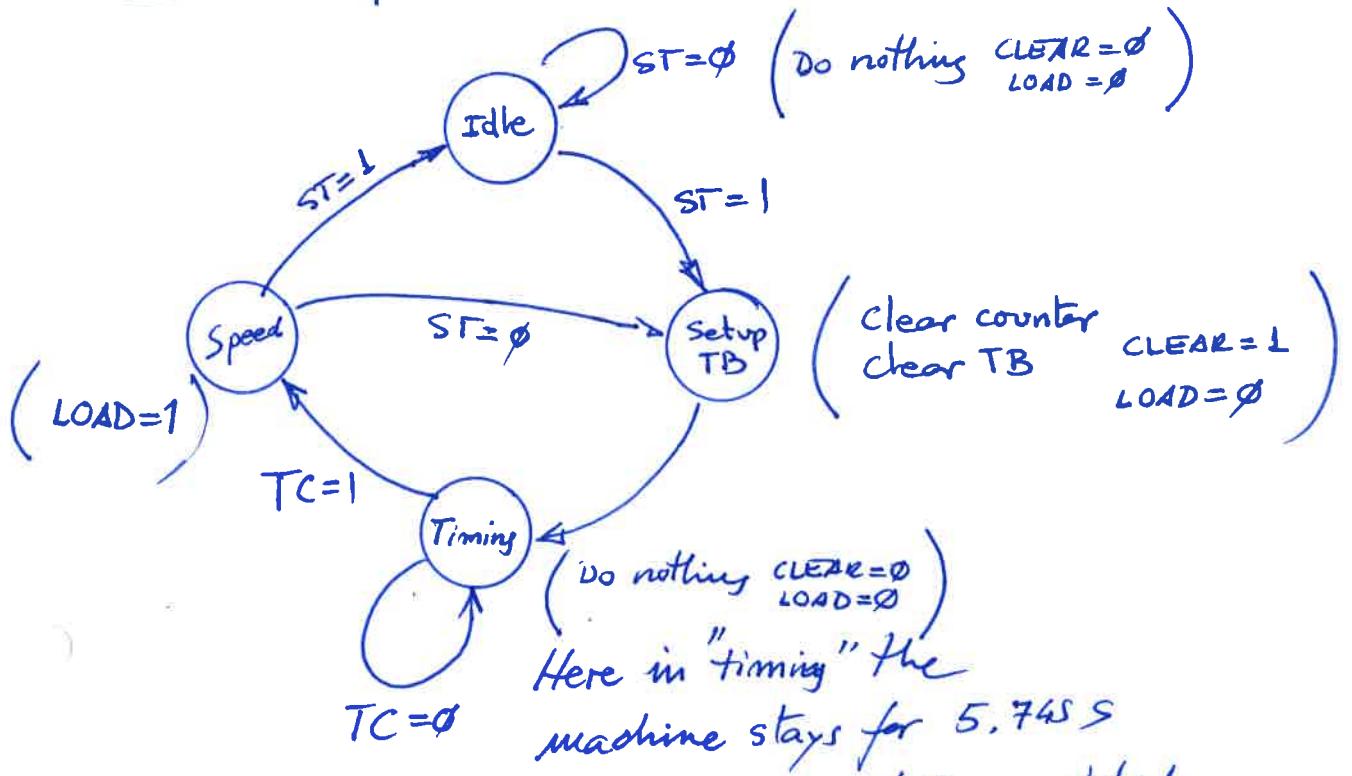 ST=Ø (Do nothing CLEAR=Ø
LOAD=Ø)
Idle
ST=1
ST=1
Speed
ST=Ø
Setup
TB
(Clear counter
Clear TB CLEAR=1
LOAD=Ø)
(LOAD=1)
TC=1
Timing
(Do nothing CLEAR=Ø
LOAD=Ø)
TC=Ø
Here in "timing" the
machine stays for 5.745 S